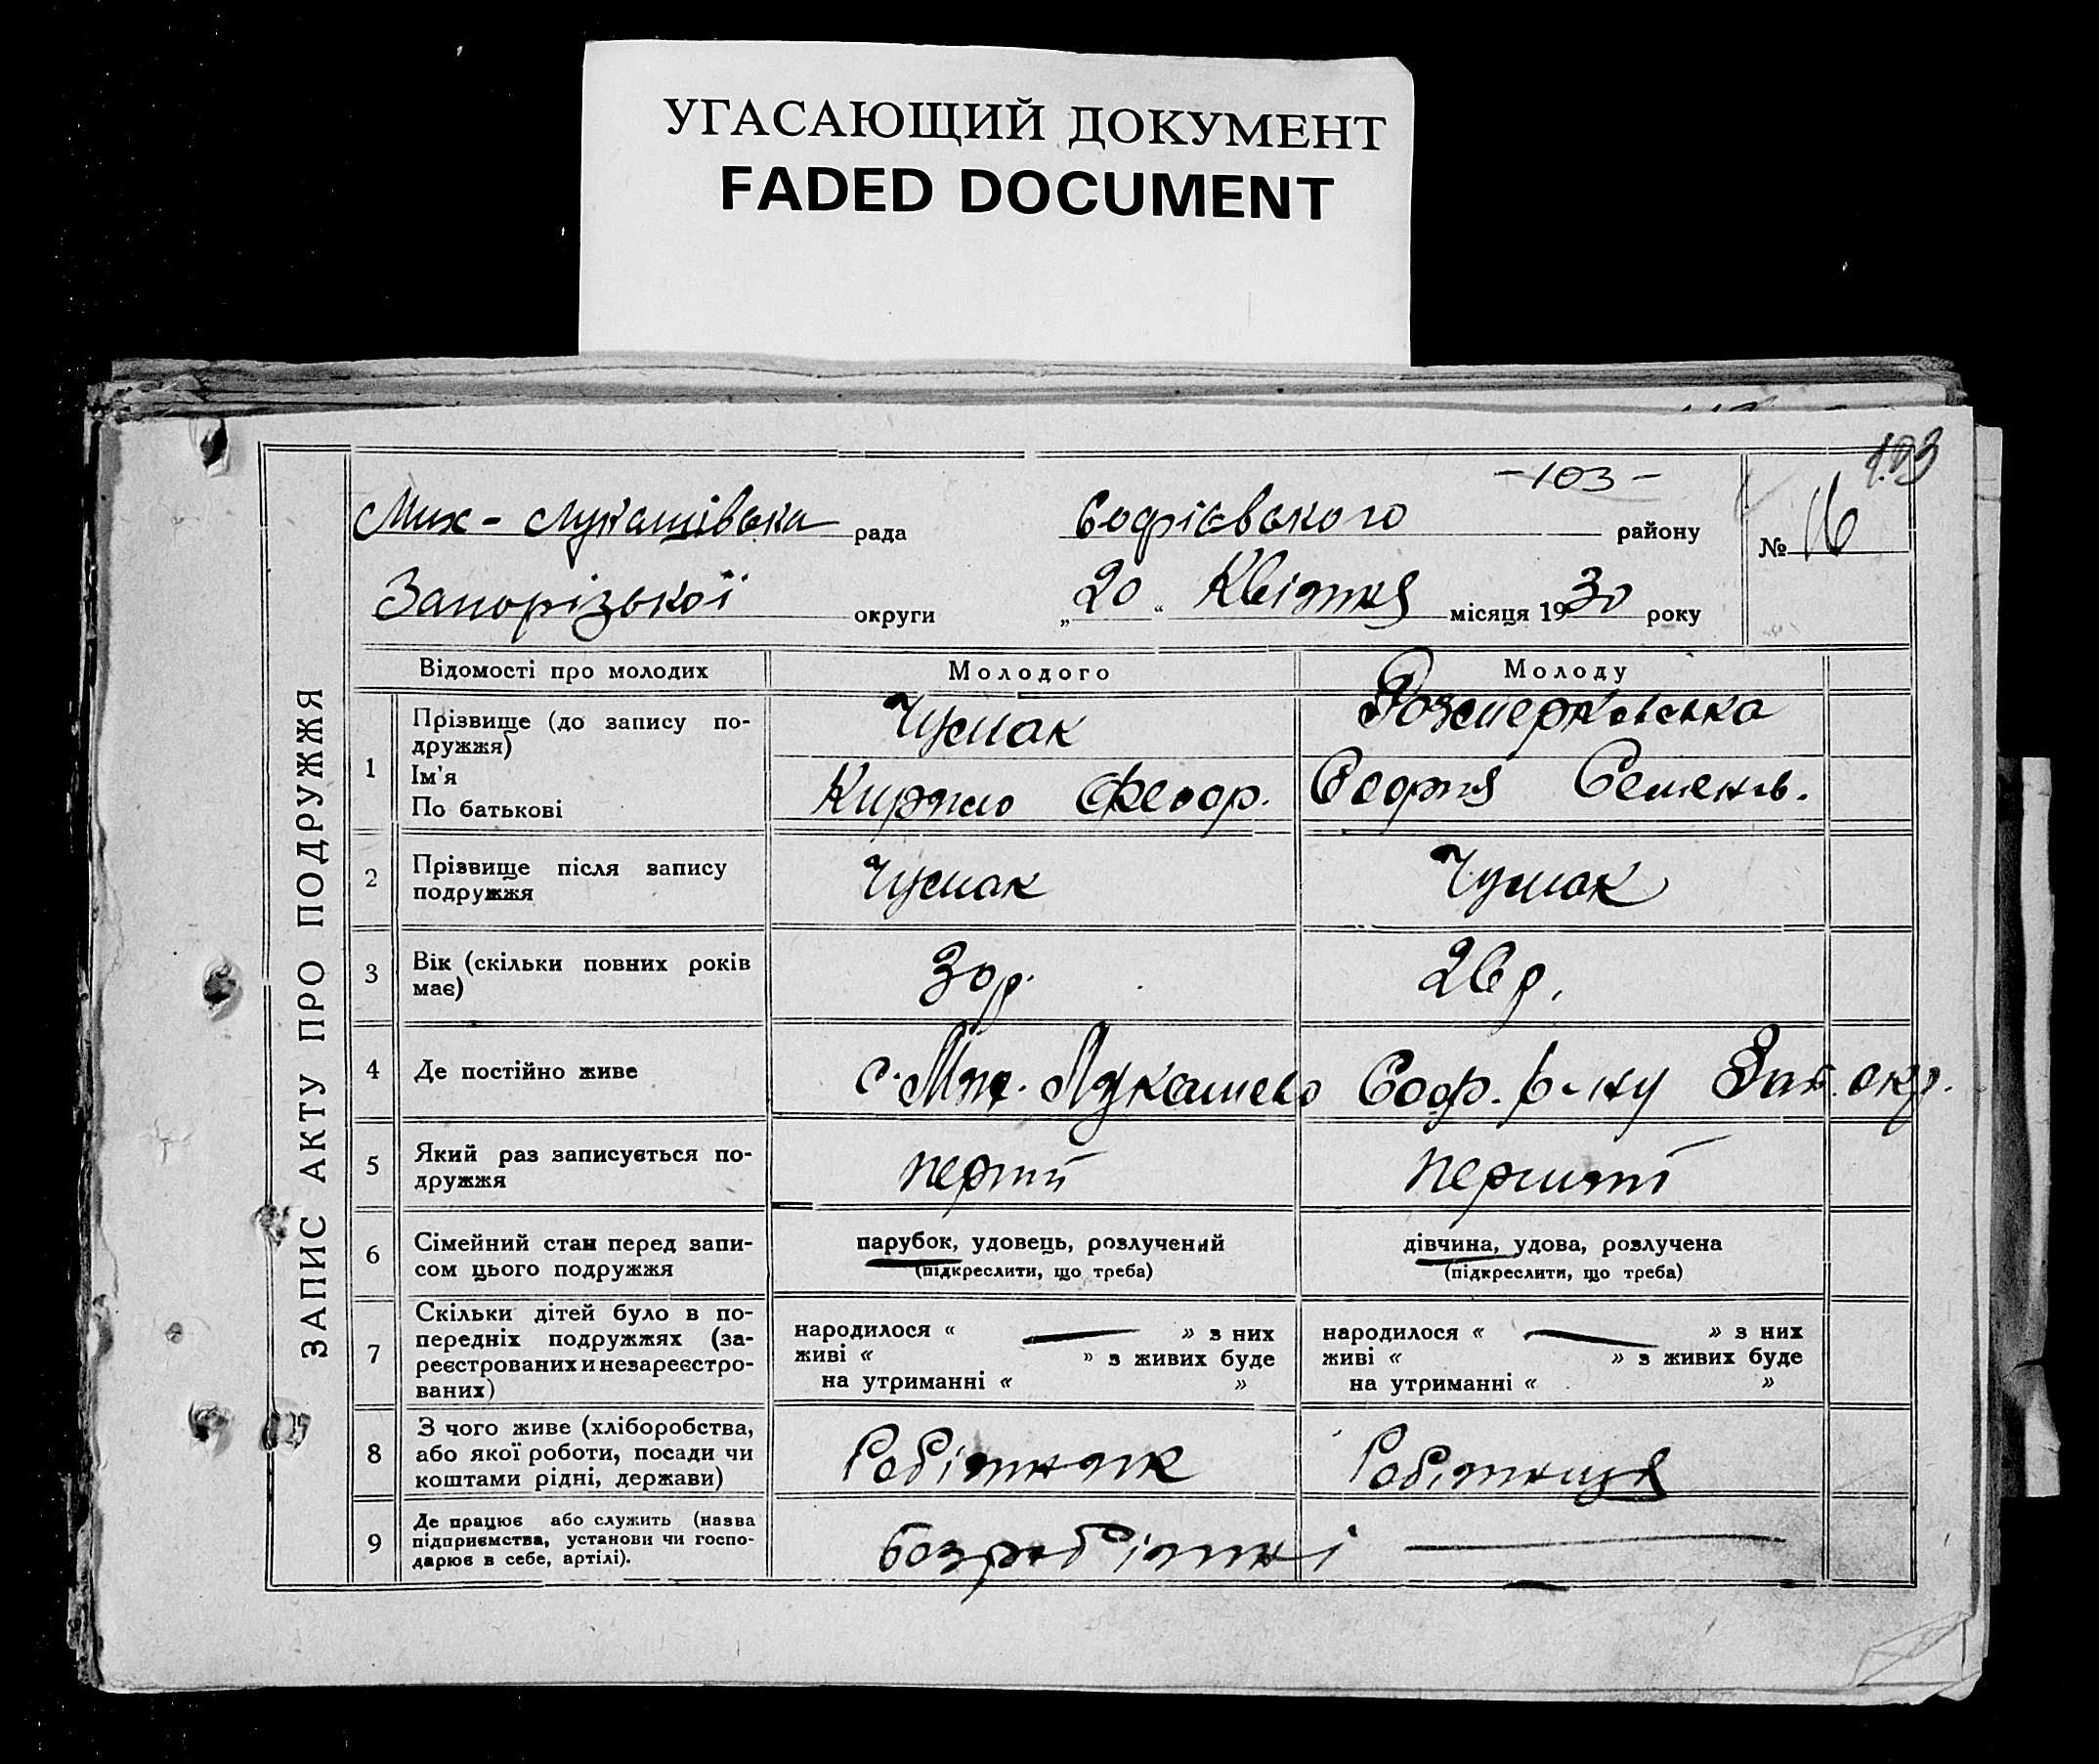 УГАСАЮЩИЙ ДОКУМЕНТ
FADED DOCUMENT
103
-103-
Мих-Лукашівська рада Софієвського району № 16
Запорізької округи „20“ Квітня місяця 1930 року
ЗАПИС АКТУ ПРО ПОДРУЖЖЯ
Відомості про молодих Молодого Молоду
1 Прізвище (до запису по-
дружжя) Чумак
Ім'я
По батькові Кирило Феодор. София Семенів.
2 Прізвище після запису
подружжя Чумак Чумак
3 Вік (скільки повних років
має) 30р. 26р.
4 Де постійно живе с. Мих. Лукашево Соф. р-ну Зап. окр.
5 Який раз записується по-
дружжя перший перший
6 Сімейний стан перед запи-
сом цього подружжя
парубок, удовець, розлучений
(підкреслити, що треба)
дівчина, удова, розлучена
(підкреслити, що треба)
7 Скільки дітей було в по-
передніх подружжях (за-
реєстрованих и незареєстро-
ваних)
народилося « — » з них
живі « » з живих буде
на утриманні « »
народилося « — » з них
живі « » з живих буде
на утриманні « »
8 З чого живе (хліборобства,
або якої роботи, посади чи
коштами рідні, держави) Робітник Робітниця
9 Де працює або служить (назва
підприємства, установи чи госпо-
дарює в себе, артілі). безробітні —